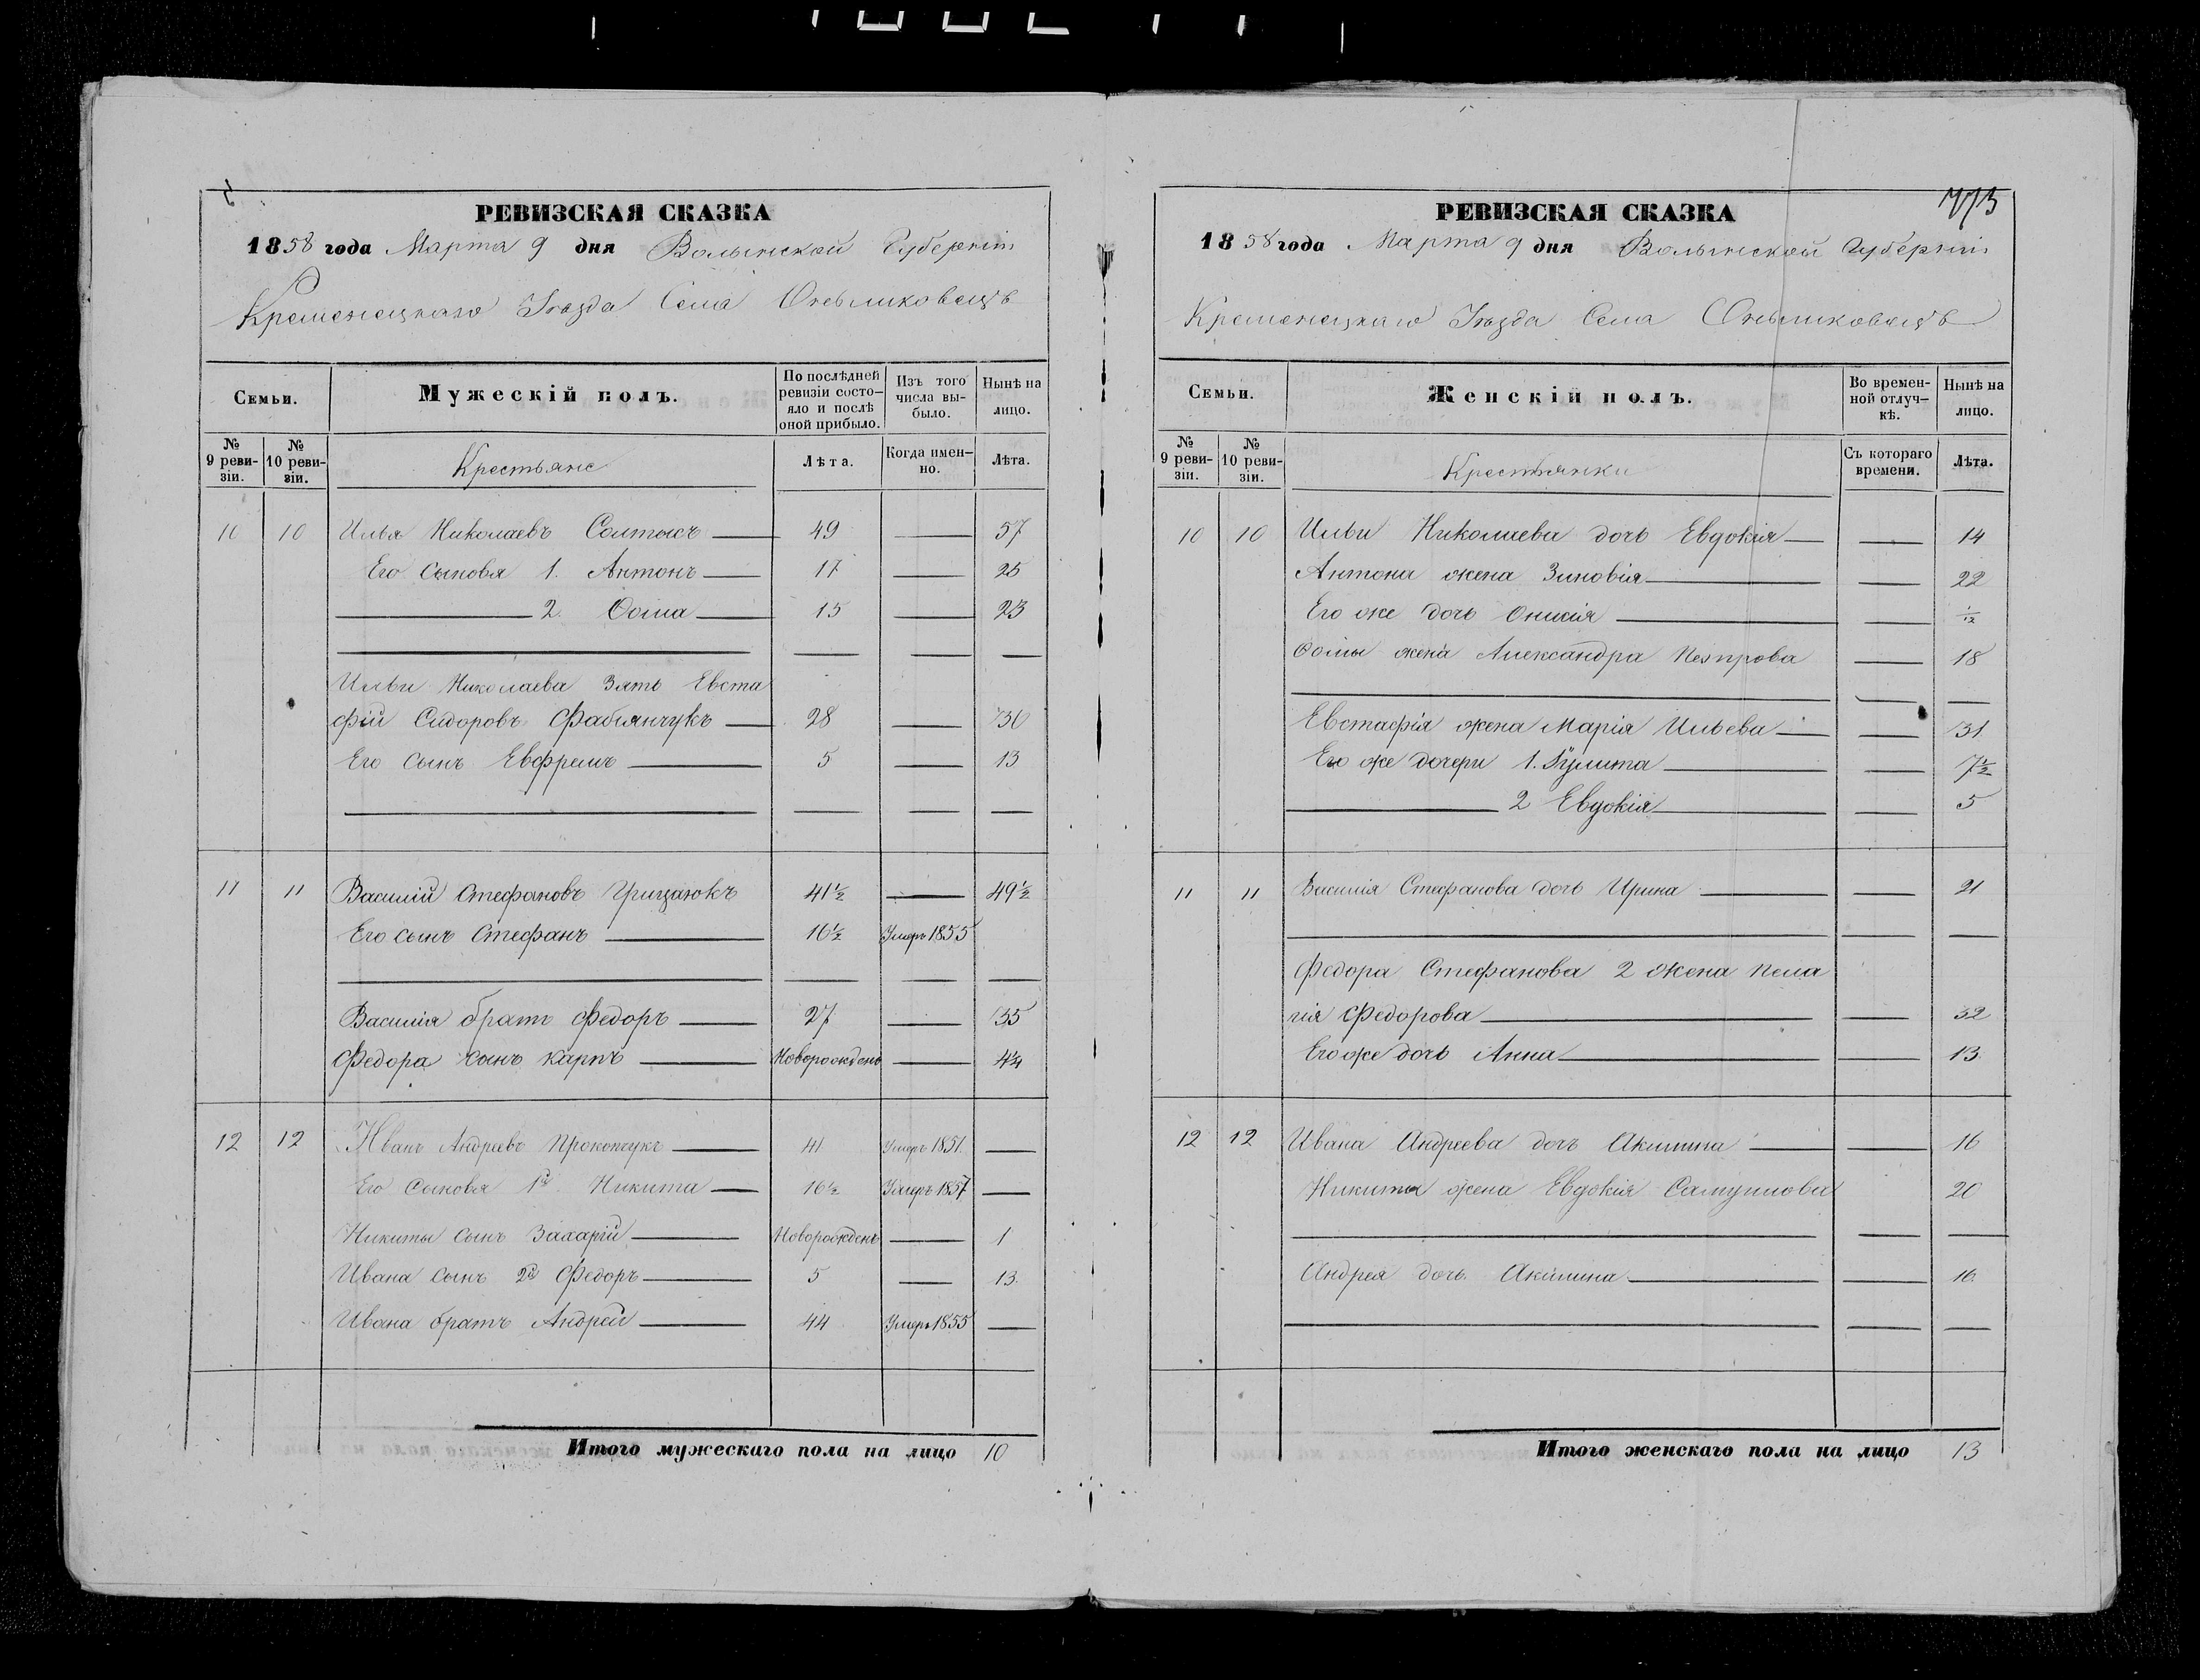 РЕВИЗСКАЯ СКАЗКА
1858 года Марта 9 дня Волынской Губерніи
Кременецкаго Уѣзда Села
Семьи.
Мужескій полъ.
По послѣдней ревизіи состо-
яло и послѣ
оной прибыло.
Изъ того
числа вы-
было.
Нынѣ на
лицо.
№
9 реви-
зіи.
№
10 реви-
зіи.
Крестьяне
Лѣта.
Когда имен-
но.
Лѣта.
10 10 Илья Николаевъ Солтысъ 49 57
Его сыновья 1. Антонъ 17 25
2. Ѳома 15 23
Ильи Николаева зять Евста
фій Сидоровъ Фабіянчукъ 28 36
Его сынъ Евфремъ 5 13
11 11 Василій Стефановъ Грицаюкъ 41½ 49½
Его сынъ Стефанъ 16½ Умеръ 1855
Василія братъ Федоръ 27 35
Федора сынъ Карпъ Новорожденъ 4¼
12 12 Иванъ Андреевъ Прокопчукъ 41 Умеръ 1851
Его сыновья 1й Никита 16½ Умеръ 1857
Никиты сынъ Захарій Новорожденъ 1
Ивана сынъ 2й Федоръ 5 13
Ивана братъ Андрей 44 Умеръ 1855
Итого мужескаго пола на лицо 10
РЕВИЗСКАЯ СКАЗКА
1858 года Марта 9 дня Волынской Губерніи
Кременецкаго Уѣзда Села
Семьи.
Женскій полъ.
Во времен-
ной отлуч-
кѣ.
Нынѣ на
лицо.
№
9 реви-
зіи.
№
10 реви-
зіи.
Крестьянки
Съ котораго
времени.
Лѣта.
10 10 Ильи Николаева дочь Евдокія 14
Антона жена Зиновія 22
Его же дочь Онисія 1/12
Ѳомы жена Александра Петрова 18
Евстафія жена Марія Ильева 31
Его же дочери 1. Іулита 7½
2 Евдокія 5
11 11 Василія Стефанова дочь Ирина 21
Федора Стефанова 2 жена Пела
гія Федорова 32
Его же дочь Анна 13
12 12 Ивана Андреева дочь Акилина 16
Никиты жена Евдокія Самуилова 20
Андрея дочь Акилина 16
Итого женскаго пола на лицо 13